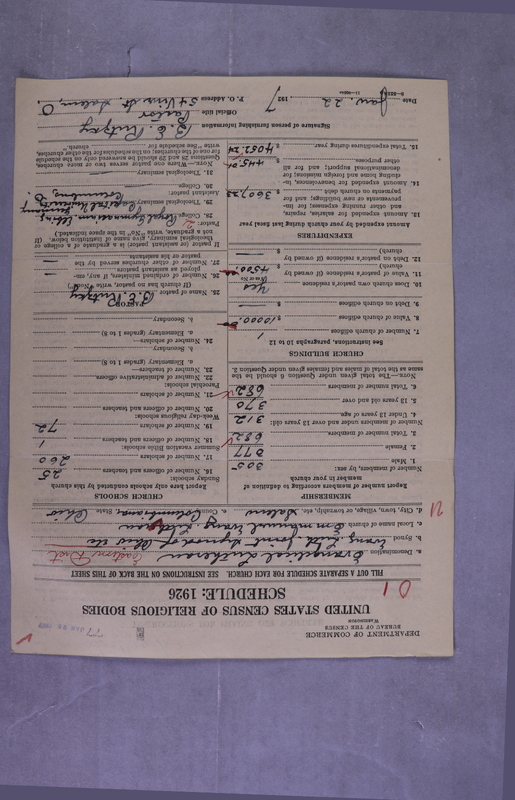 DEPARTMENT OF COMMERCE
BUREAU OF THE CENSUS
WASHINGTON
UNITED STATES CENSUS OF RELIGIOUS BODIES
SCHEDULE: 1926
FILL OUT A SEPARATE SCHEDULE FOR EACH CHURCH, SEE INSTRUCTIONS ON THE BACK OF THIS SHEET
a. Denomination Evangelical Lutheran Eastern Dist
b. Synod Evang. Luth. Joint Synod of Ohio etc
c. Local name of church Emmanuel Evang. Lutheran
d. City, town, village, or township, etc. Salem e. County Columbiana State Ohio
MEMBERSHIP
Report number of members according to definition of member in your church
Number of members, by sex:
1. Male 305
2. Female 377
3. Total number of members 682
Number of members under and over 13 years old:
4. Under 13 years of age 312
5. 13 years old and over 370
6. Total number of members 682
NOTE.—The total given under Question 6 should be the same as the total of males and females given under Question 3.
CHURCH BUILDINGS
See instructions, paragraphs 10 to 12
7. Number of church edifices 1
8. Value of church edifices $ 10000.00
9. Debt on church edifices $
10. Does church own pastor's residence? Yes
(Yes or No)
11. Value of pastor's residence (if owned by church) $ 4500.00
12. Debt on pastor's residence (if owned by church) $
EXPENDITURES
Amount expended by your church during last fiscal year
13. Amount expended for salaries, repairs, and other running expenses; for improvements or new buildings; for payments on church debt $
14. Amount expended for benevolences, including home and foreign missions; for denominational support; and for all other purposes $
15. Total expenditures during year $ 4052.24
CHURCH SCHOOLS
Report here only schools conducted by this church
Sunday schools:
16. Number of officers and teachers 25
17. Number of scholars 260
Summer vacation Bible schools:
18. Number of officers and teachers 1
19. Number of scholars 72
Week-day religious schools:
20. Number of officers and teachers
21. Number of scholars
Parochial schools:
22. Number of administrative officers
23. Number of teachers—
a. Elementary (grades 1 to 8)
b. Secondary
24. Number of scholars—
a. Elementary (grades 1 to 8)
b. Secondary
PASTOR
25. Name of pastor
(If church has no pastor, write "No")
26. Number of ordained ministers, if any, employed as assistant pastors
27. Number of other churches served by the pastor or his assistants
If pastor (or assistant pastor) is a graduate of a college or theological seminary, give name of institution below. (If not a graduate, write "No" in the place indicated.)
Pastor:
28. College
29. Theological seminary Capital University Columbus, O.
Assistant pastor:
30. College
31. Theological seminary
NOTE.—Where one pastor serves two or more churches, Questions 28 and 29 should be answered only on the schedule for one of the churches; on the schedules for the other churches, write "See schedule for church."
Signature of person furnishing information
Official title Pastor
Date Jan. 22, 1927 P. O. Address Vine St. Salem, O